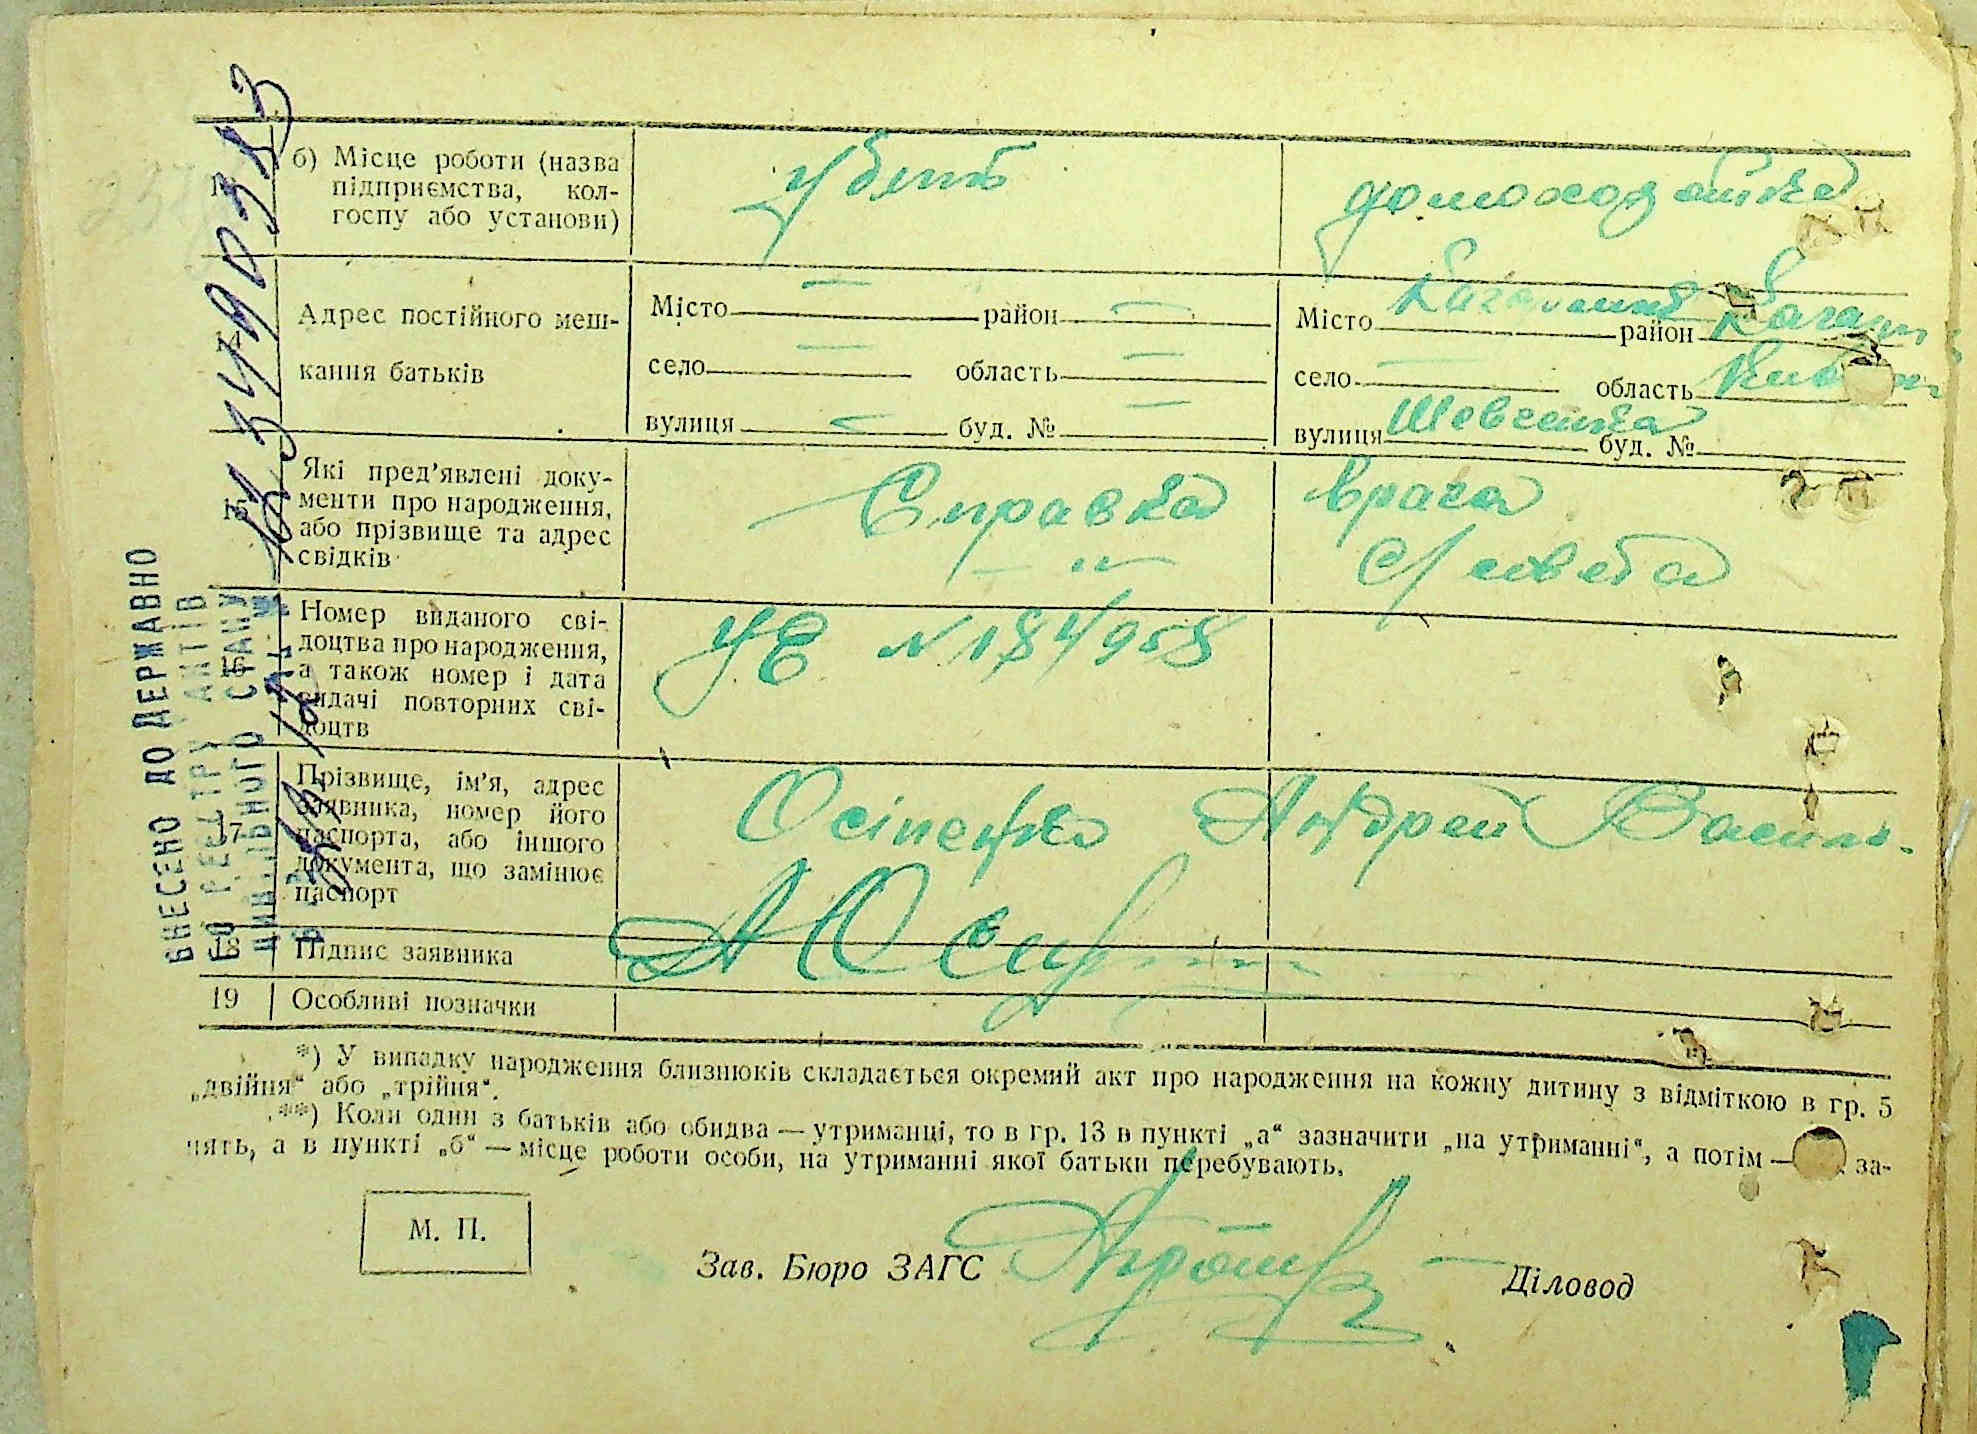 б) Місце роботи (назва
підприємства, кол-
госпу або установи)
убит
домохозяйка
Адрес постійного меш-
кання батьків
Місто — район —
село — область —
вулиця — буд. № —
Місто район
село — область
вулиця Шевченка буд. №
15
Які пред'явлені доку-
менти про народження,
або прізвище та адрес
свідків
Справка врача
— " —
16
Номер виданого сві-
доцтва про народження,
а також номер і дата
видачі повторних сві-
доцтв
УЕ № 184958
17
Прізвище, ім'я, адрес
заявника, номер його
паспорта, або іншого
документа, що замінює
паспорт
Андрей Василь.
18 Підпис заявника
19 Особливі позначки
*) У випадку народження близнюків складається окремий акт про народження на кожну дитину з відміткою в гр. 5
„двійня“ або „трійня“.
**) Коли один з батьків або обидва — утриманці, то в гр. 13 в пункті „а“ зазначити „на утриманні“, а потім — за-
нять, а в пункті „б“ — місце роботи особи, на утриманні якої батьки перебувають.
М. П.
Зав. Бюро ЗАГС
— Діловод
ВНЕСЕНО ДО ДЕРЖАВНО
ГО РЕЄСТРУ АКТІВ
ЦИВІЛЬНОГО СТАНУ